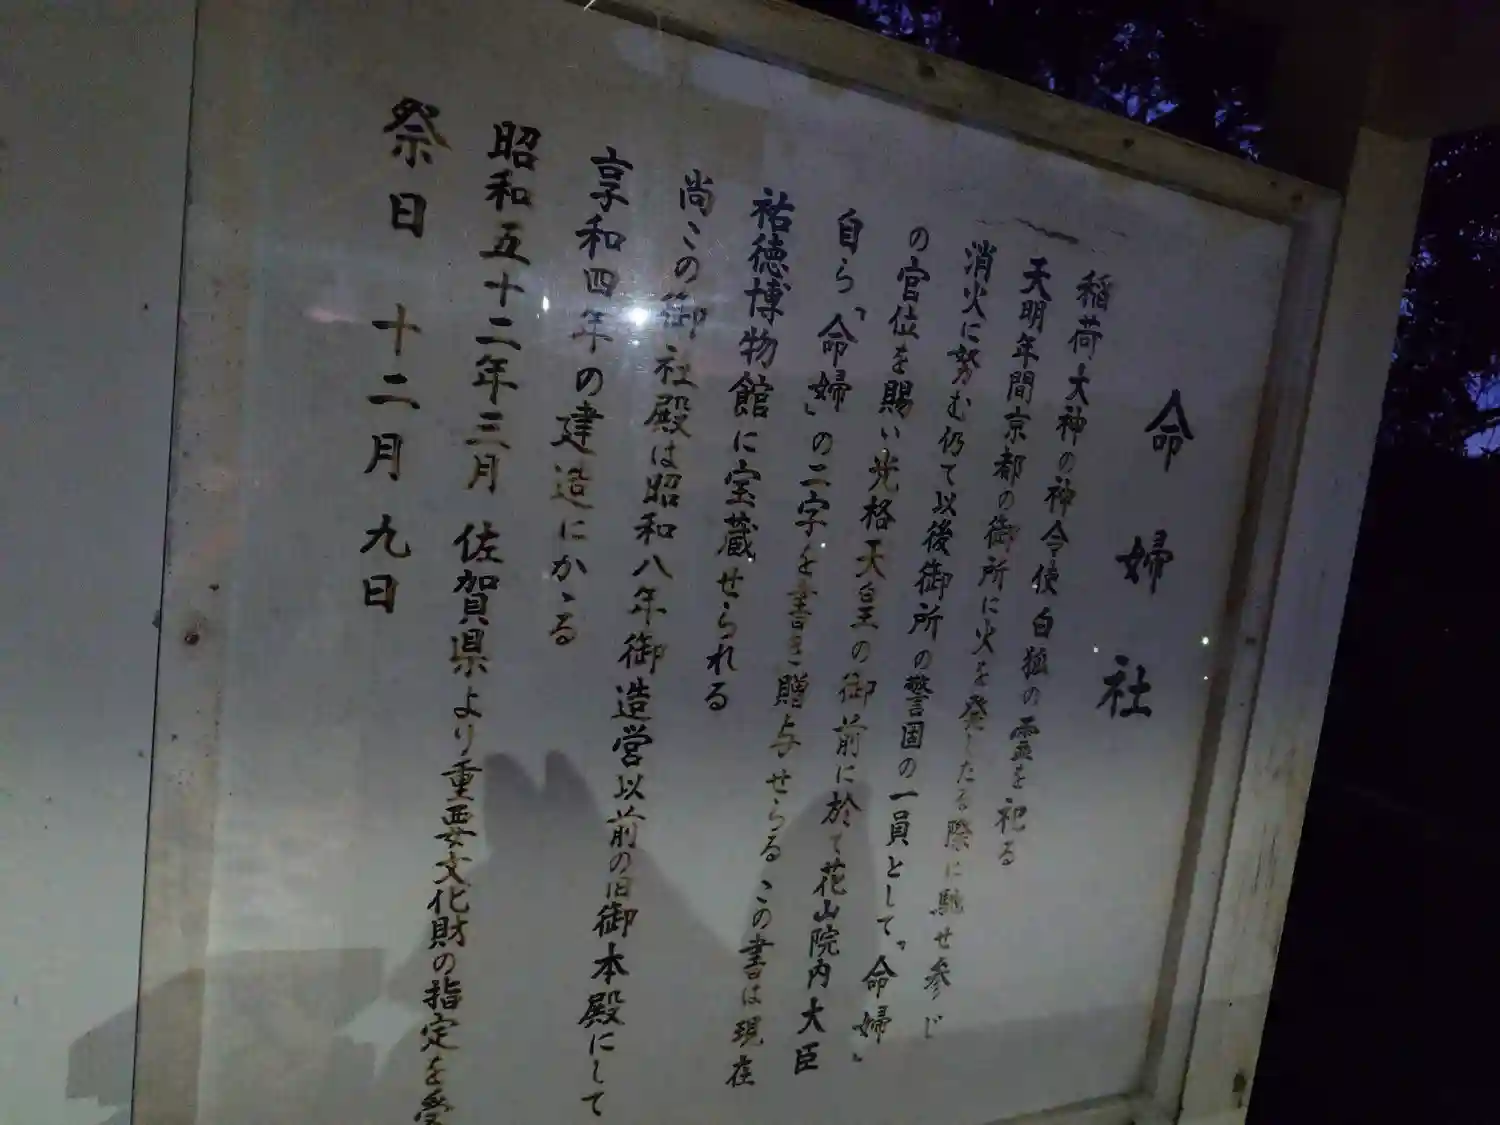 命婦社
稲荷大神の神令使白狐の霊を祀る
天明年間京都の御所に火を発したる際に馳せ参じ
消火に努む仍て以後御所の警固の一員として「命婦」
の官位を賜い光格天皇の御前に於て花山院内大臣
自ら「命婦」の二字を書き贈与せらるこの書は現在
祐徳博物館に宝蔵せられる
尚この御社殿は昭和八年御造営以前の旧御本殿にして
享和四年の建造にかゝる
昭和五十二年三月 佐賀県より重要文化財の指定を受
祭日 十二月九日